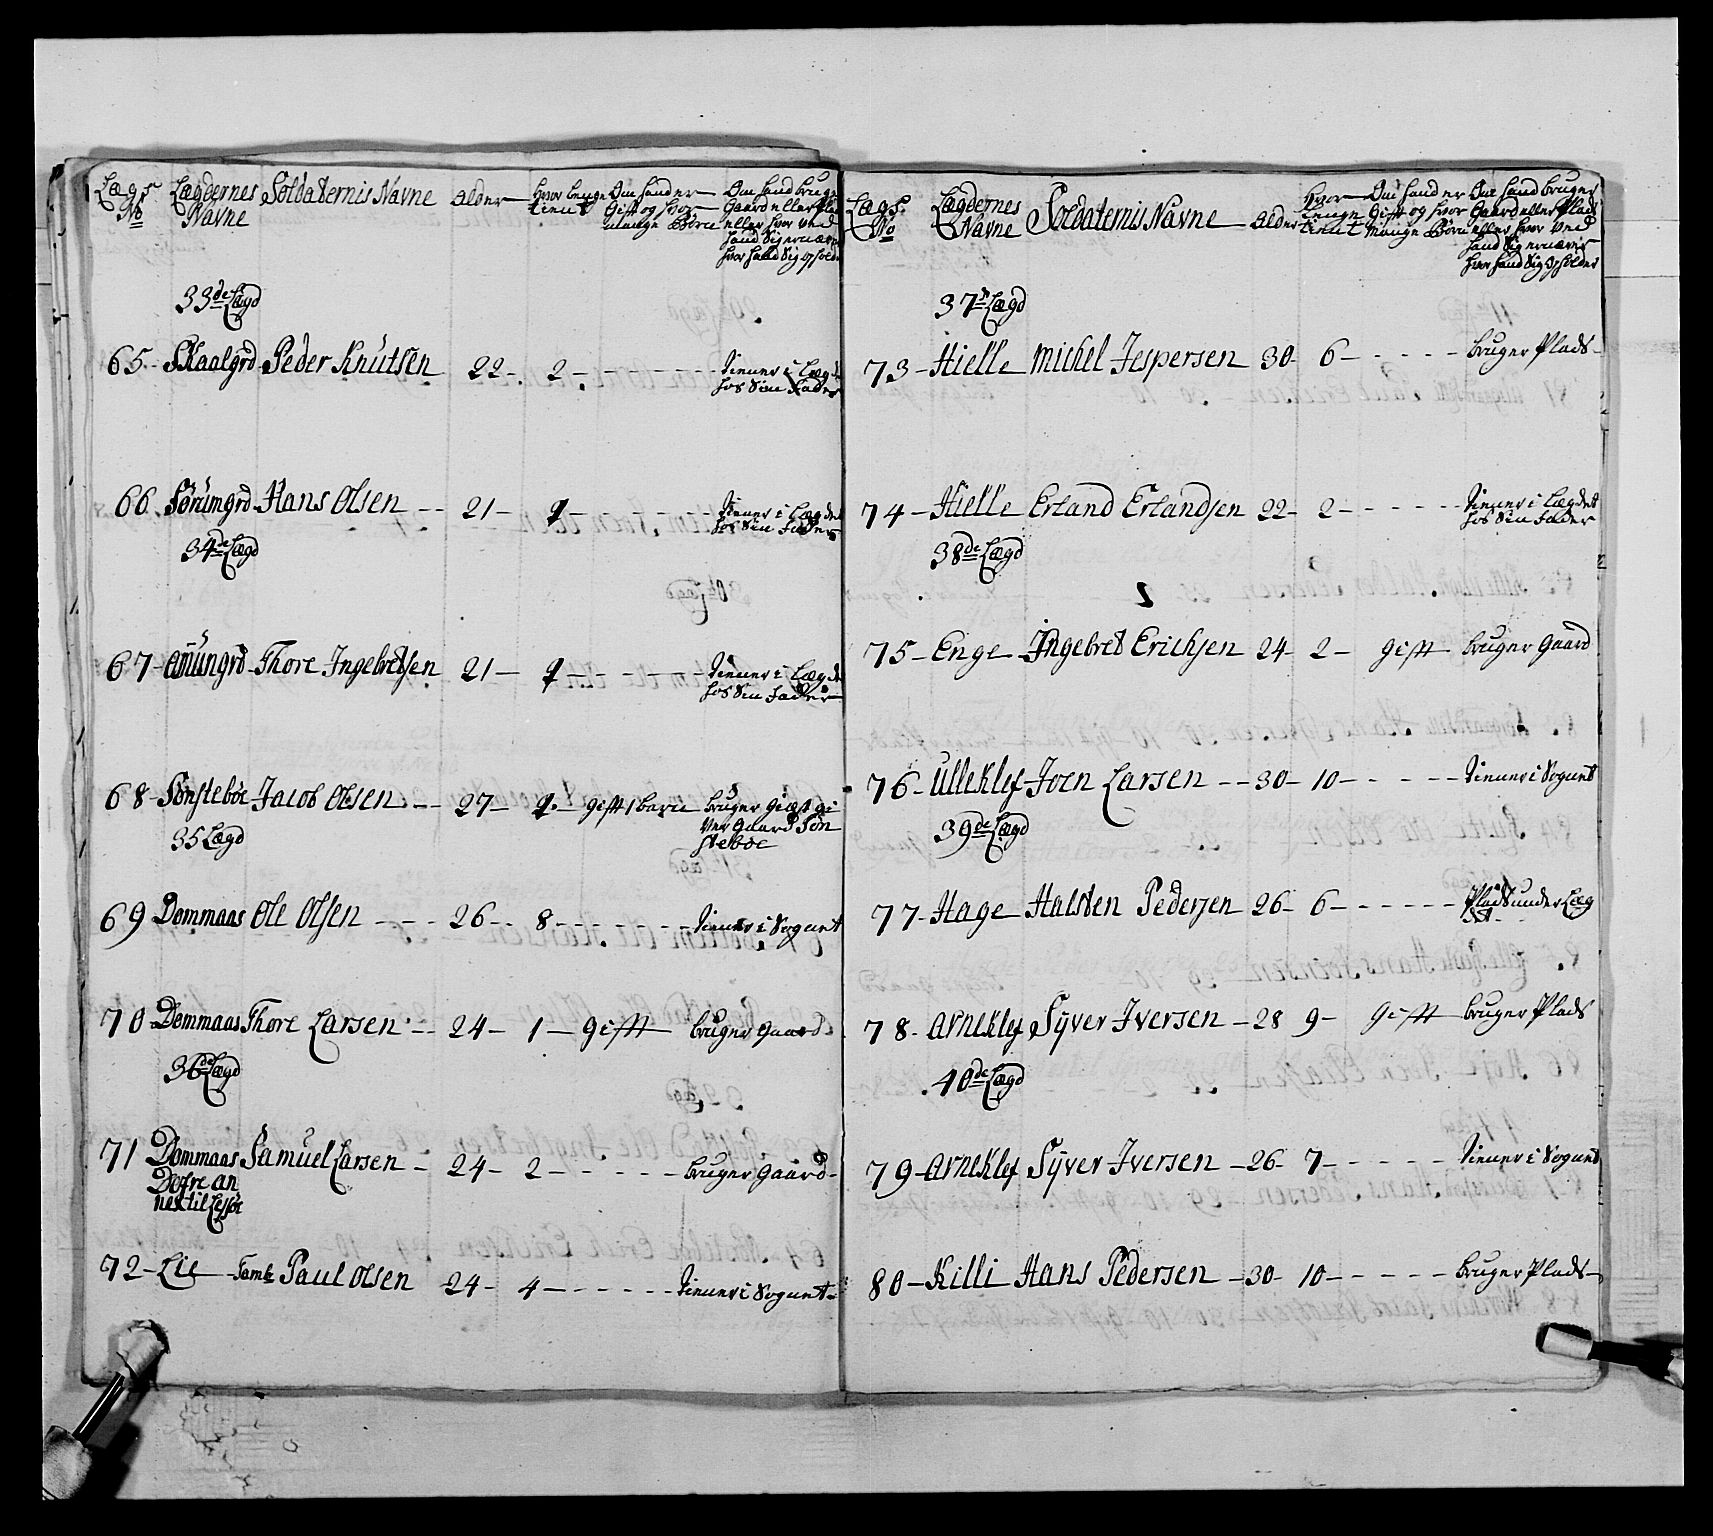 Lægs No Lægdernes Navne Soldaternis Navne Alder hvor lenge tient Om hand er Gift og hvor mange Børn Om hand bruger Gaard eller Plads eller hvor ved hand Sig ernærer hvor hand Sig opholder
33de Lægd
65 - Skaalgrd Peder Knutsen 22 - 2 - tiener i Lægdet
hos Sin Fader
66 Sørumgrd Hans Olsen -- 21 - 1 - tiener i Lægdet
hos Sin Fader
34de Lægd
67 - Amungrd Thore Ingebretsen 21 - 1 - tiener i Lægdet
hos Sin Fader
68 - Sønsteböe Jacob Olsen -- 27 - 1 - gift 1 barn bruger Giæstgi
ver Gaard Søn
steböe
35 Lægd
69 Dommaas Ole Olsen --- 26 - 8 - tiener i Sognet
70 Dommaas Thore Larsen -- 24 - 1 - gift bruger Gaard
36de Lægd
71 Dommaas Samuel Larsen - 24 - 2 - bruger Gaard
Dofre an
nex til Lessøe
72 - Lie Paul Olsen 24 - 4 - tiener i Sognet
Lægs No Lægdernes Navne Soldaternis Navne Alder hvor lenge tient Om hand er Gift og hvor mange Børn Om hand bruger Gaard eller Plads eller hvor ved hand Sig ernærer hvor hand Sig opholder
37de Lægd
73 - Hielle Michel Jespersen 30 - 6 - bruger Plads
74 - Hielle Erland Erlandsen 22 - 2 - tiener i Lægdet
hos Sin Fader
38de Lægd
75 - Enge Ingebret Erichsen 24 - 2 - gift bruger Gaard
76 - Ulleklef Joen Larsen -- 30 - 10 - tiener i Sognet
39de Lægd
77 - Hage Halsten Pedersen 26 - 6 - Plads under Læg
det
78 - Arneklef Syver Iversen - 28 9 - gift bruger Plads
40de Lægd
79 - Arneklef Syver Iversen - 26 - 7 - tiener i Sognet
80 - Killi Hans Pedersen - 30 - 10 - bruger Plads